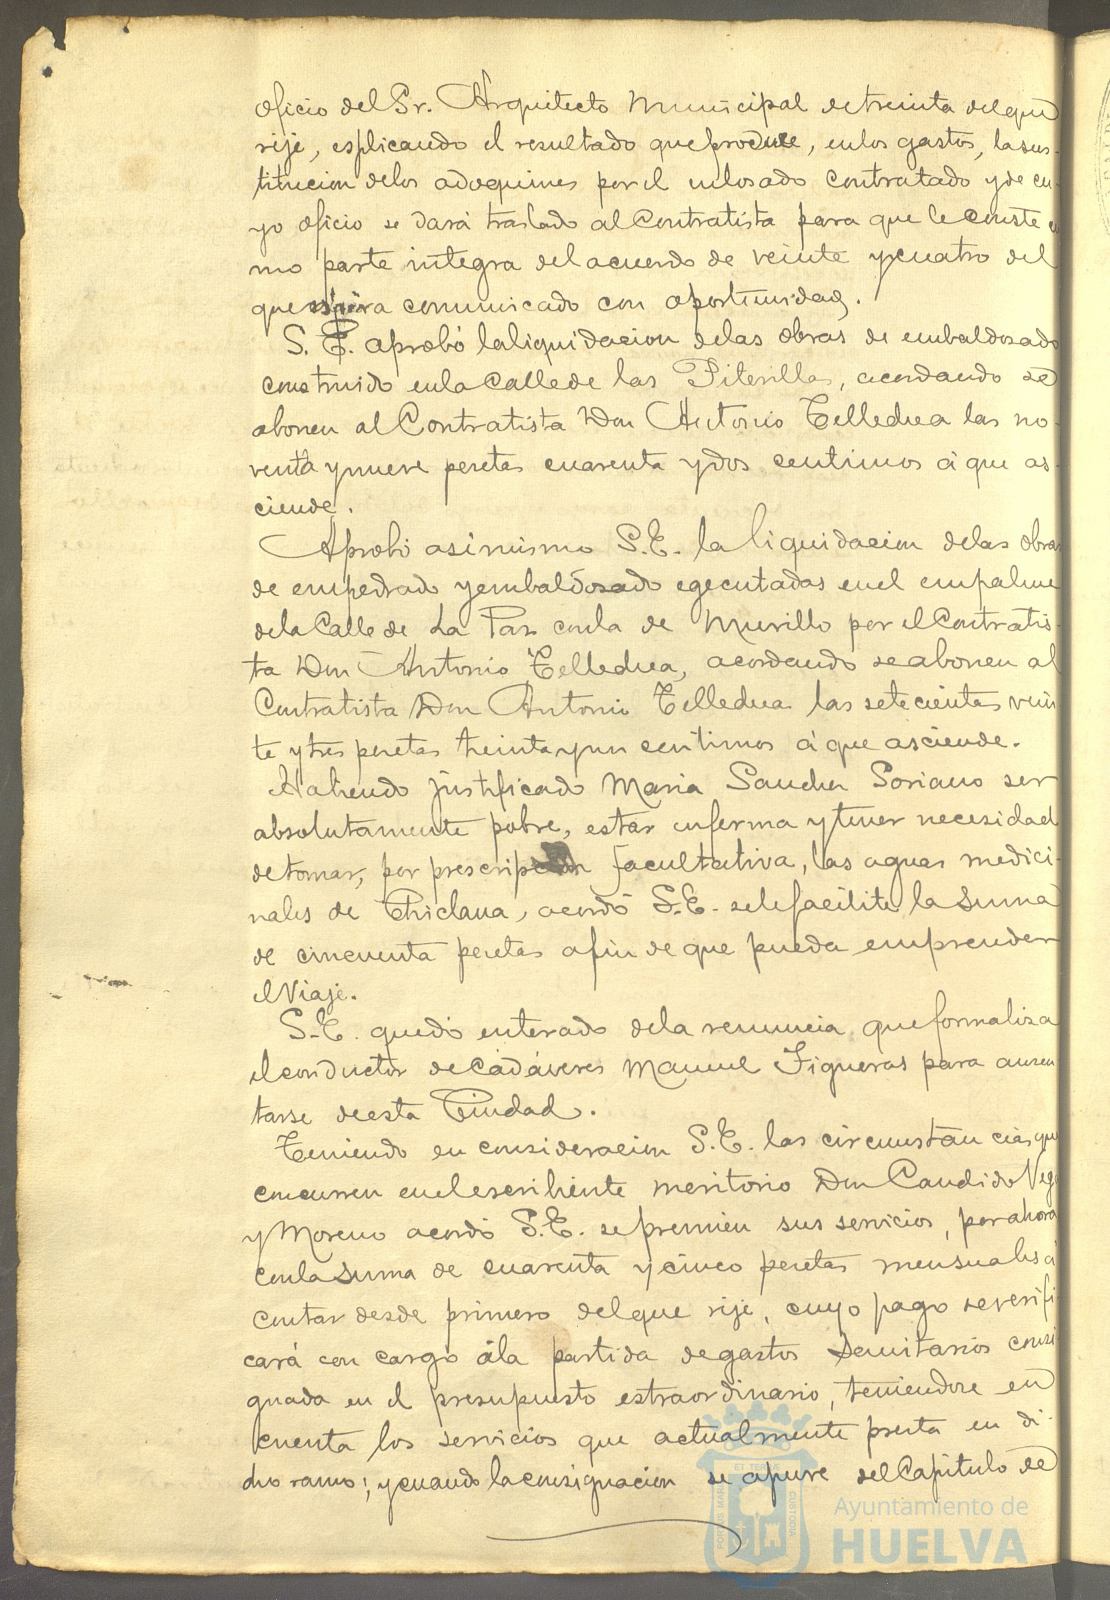 oficio del Sr. Arquitecto Municipal de treinta del que
rije, esplicando el resultado que produce, en los gastos, la sus-
titucion de los adoquines por el enlosado contratado y de cu-
yo oficio se dará traslado al Contratista para que le conste co
mo parte integra del acuerdo de veinte y cuatro del
que espira comunicado con oportunidad.
S. E. aprobó la liquidacion de las obras de embaldosado
construido en la Calle de las Piterillas, acordando se
abonen al Contratista Don Antonio Telledua las no-
venta y nueve pesetas cuarenta y dos centimos á que as-
ciende.
Aprobó asimismo S. E. la liquidacion de las obras
de empedrado y embaldosado egecutadas en el empalme
de la Calle de La Paz con la de Murillo por el Contratis-
ta Don Antonio Telledua, acordando se abonen al
Contratista Don Antonio Telledua las setecientas vein
te y tres pesetas treinta y un centimos á que asciende.
Habiendo justificado Maria Sanchez Soriano ser
absolutamente pobre, estar enferma y tener necesidad
de tomar, por prescripcion facultativa, las aguas medici-
nales de Chiclana, acordó S. E. se le facilite la suma
de cincuenta pesetas a fin de que pueda emprender
el viaje.
S. E. quedó enterado de la renuncia que formaliza
el conductor de Cadáveres Manuel Figueras para ausen
tarse de esta Ciudad.
Teniendo en consideracion S. E. las circunstancias que
concurren en el escribiente meritorio Don Candido Vega
y Moreno acordó S. E. se premien sus servicios, por ahora
con la suma de cuarenta y cinco pesetas mensuales á
contar desde primero del que rije, cuyo pago se verifi
cará con cargo á la partida de gastos Sanitarios consi
gnada en el presupuesto estraordinario, teniendose en
cuenta los servicios que actualmente presta en di-
cho ramo; y cuando la consignacion se apure del Capitulo de
PORTUS MARIS ET TERRAE CUSTODIA
Ayuntamiento de
HUELVA